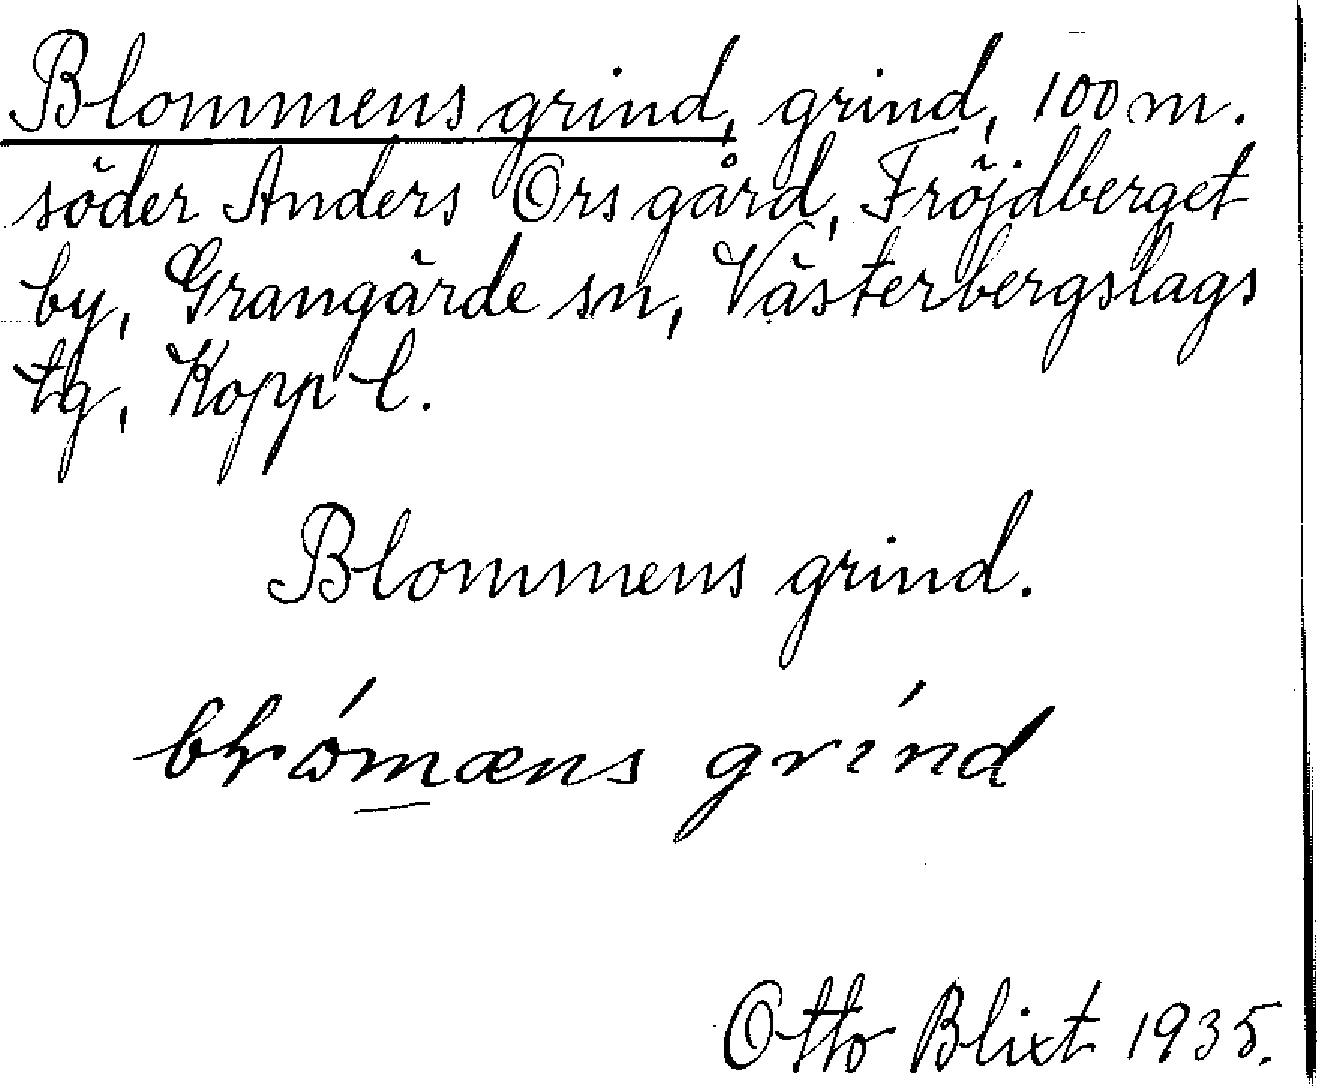 Blommens grind, grind, 100 m.
söder Anders Ors gård, Fröjdberget
by, Grangärde sn, Västerbergslags
tg, Kopp l.
Blommens grind.
grínd
Otto Blixt 1935.